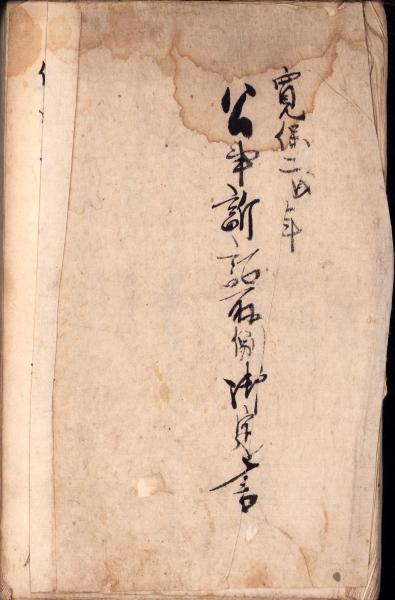 寛保二年
公事訴訟取捌御定書